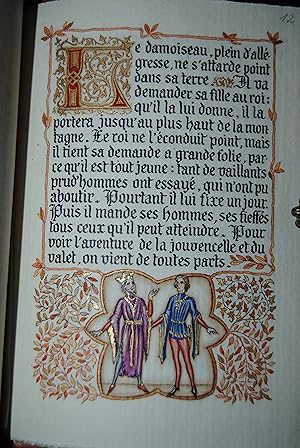 12
Le damoiseau, plein d'allé-
gresse, ne s'attarde point
dans sa terre. Il va
demander sa fille au roi:
qu'il la lui donne, il la
portera jusqu'au plus haut de la mon-
tagne. Le roi ne l'éconduit point, mais
il tient sa demande a grande folie, par
ce qu'il est tout jeune: tant de vaillants
prud'hommes ont essayé, qui n'ont pu
aboutir. Pourtant il lui fixe un jour.
Puis il mande ses hommes, ses fieffés
tous ceux qu'il peut atteindre. Pour
voir l'aventure de la jouvencelle et du
valet, on vient de toutes parts.